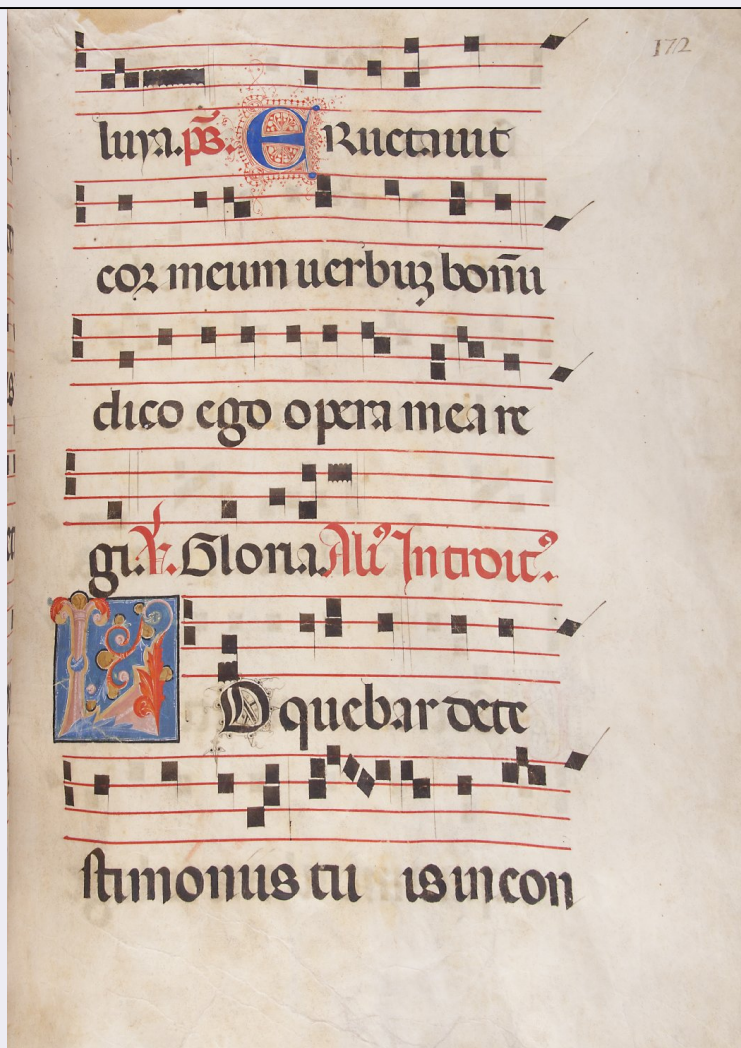 172
luya. ps. Eructauit
cor meum uerbuz bonū
dico ego opera mea re
gi. V. Gloria. Ali' Introit'.
Loquebar dete
stimoniis tu is in con